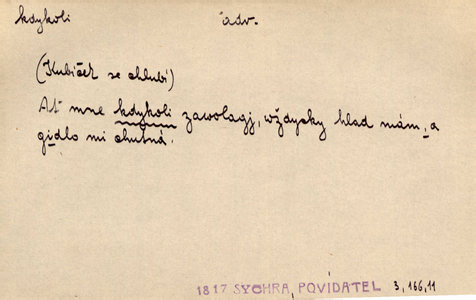 kdykoli adv.
(Kubíček se chlubí)
Ať mne kdykoli zawolagj, wždycky hlad mám, a
gidlo mi chutná.
1817 SYCHRA, POVIDATEL 3, 166, 11